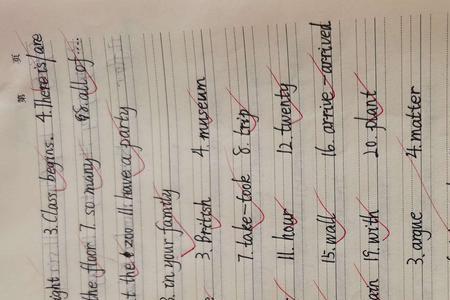 第 页
3. Class begins. 4. There is/are
the floor 7. so many 8. all of ...
t the zoo 11. have a party
3. in your family
3. British 4. museum
7. take-took 8. trip
11. hour 12. twenty
15. wall 16. arrive-arrived
19. with 20. plant
3. argue 4. matter